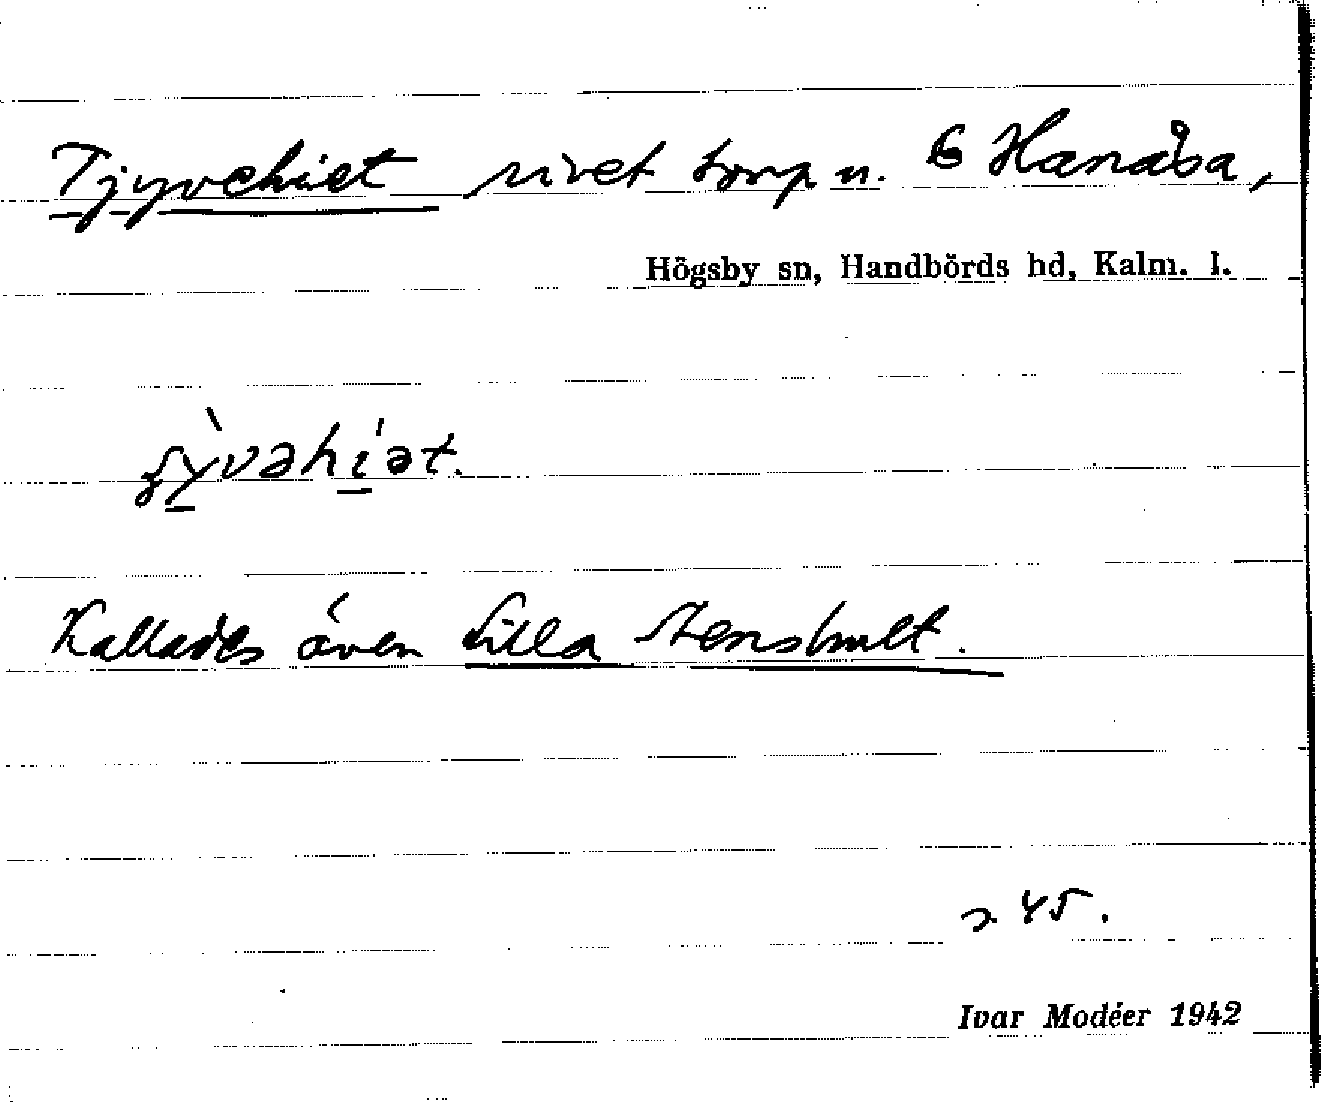 Tjyvehiet rivet torp u. 6 Hanåsa,
Högsby sn, Handbörds hd, Kalm. l.
Kallades även Lilla Stenshult.
45.
Ivar Modéer 1942